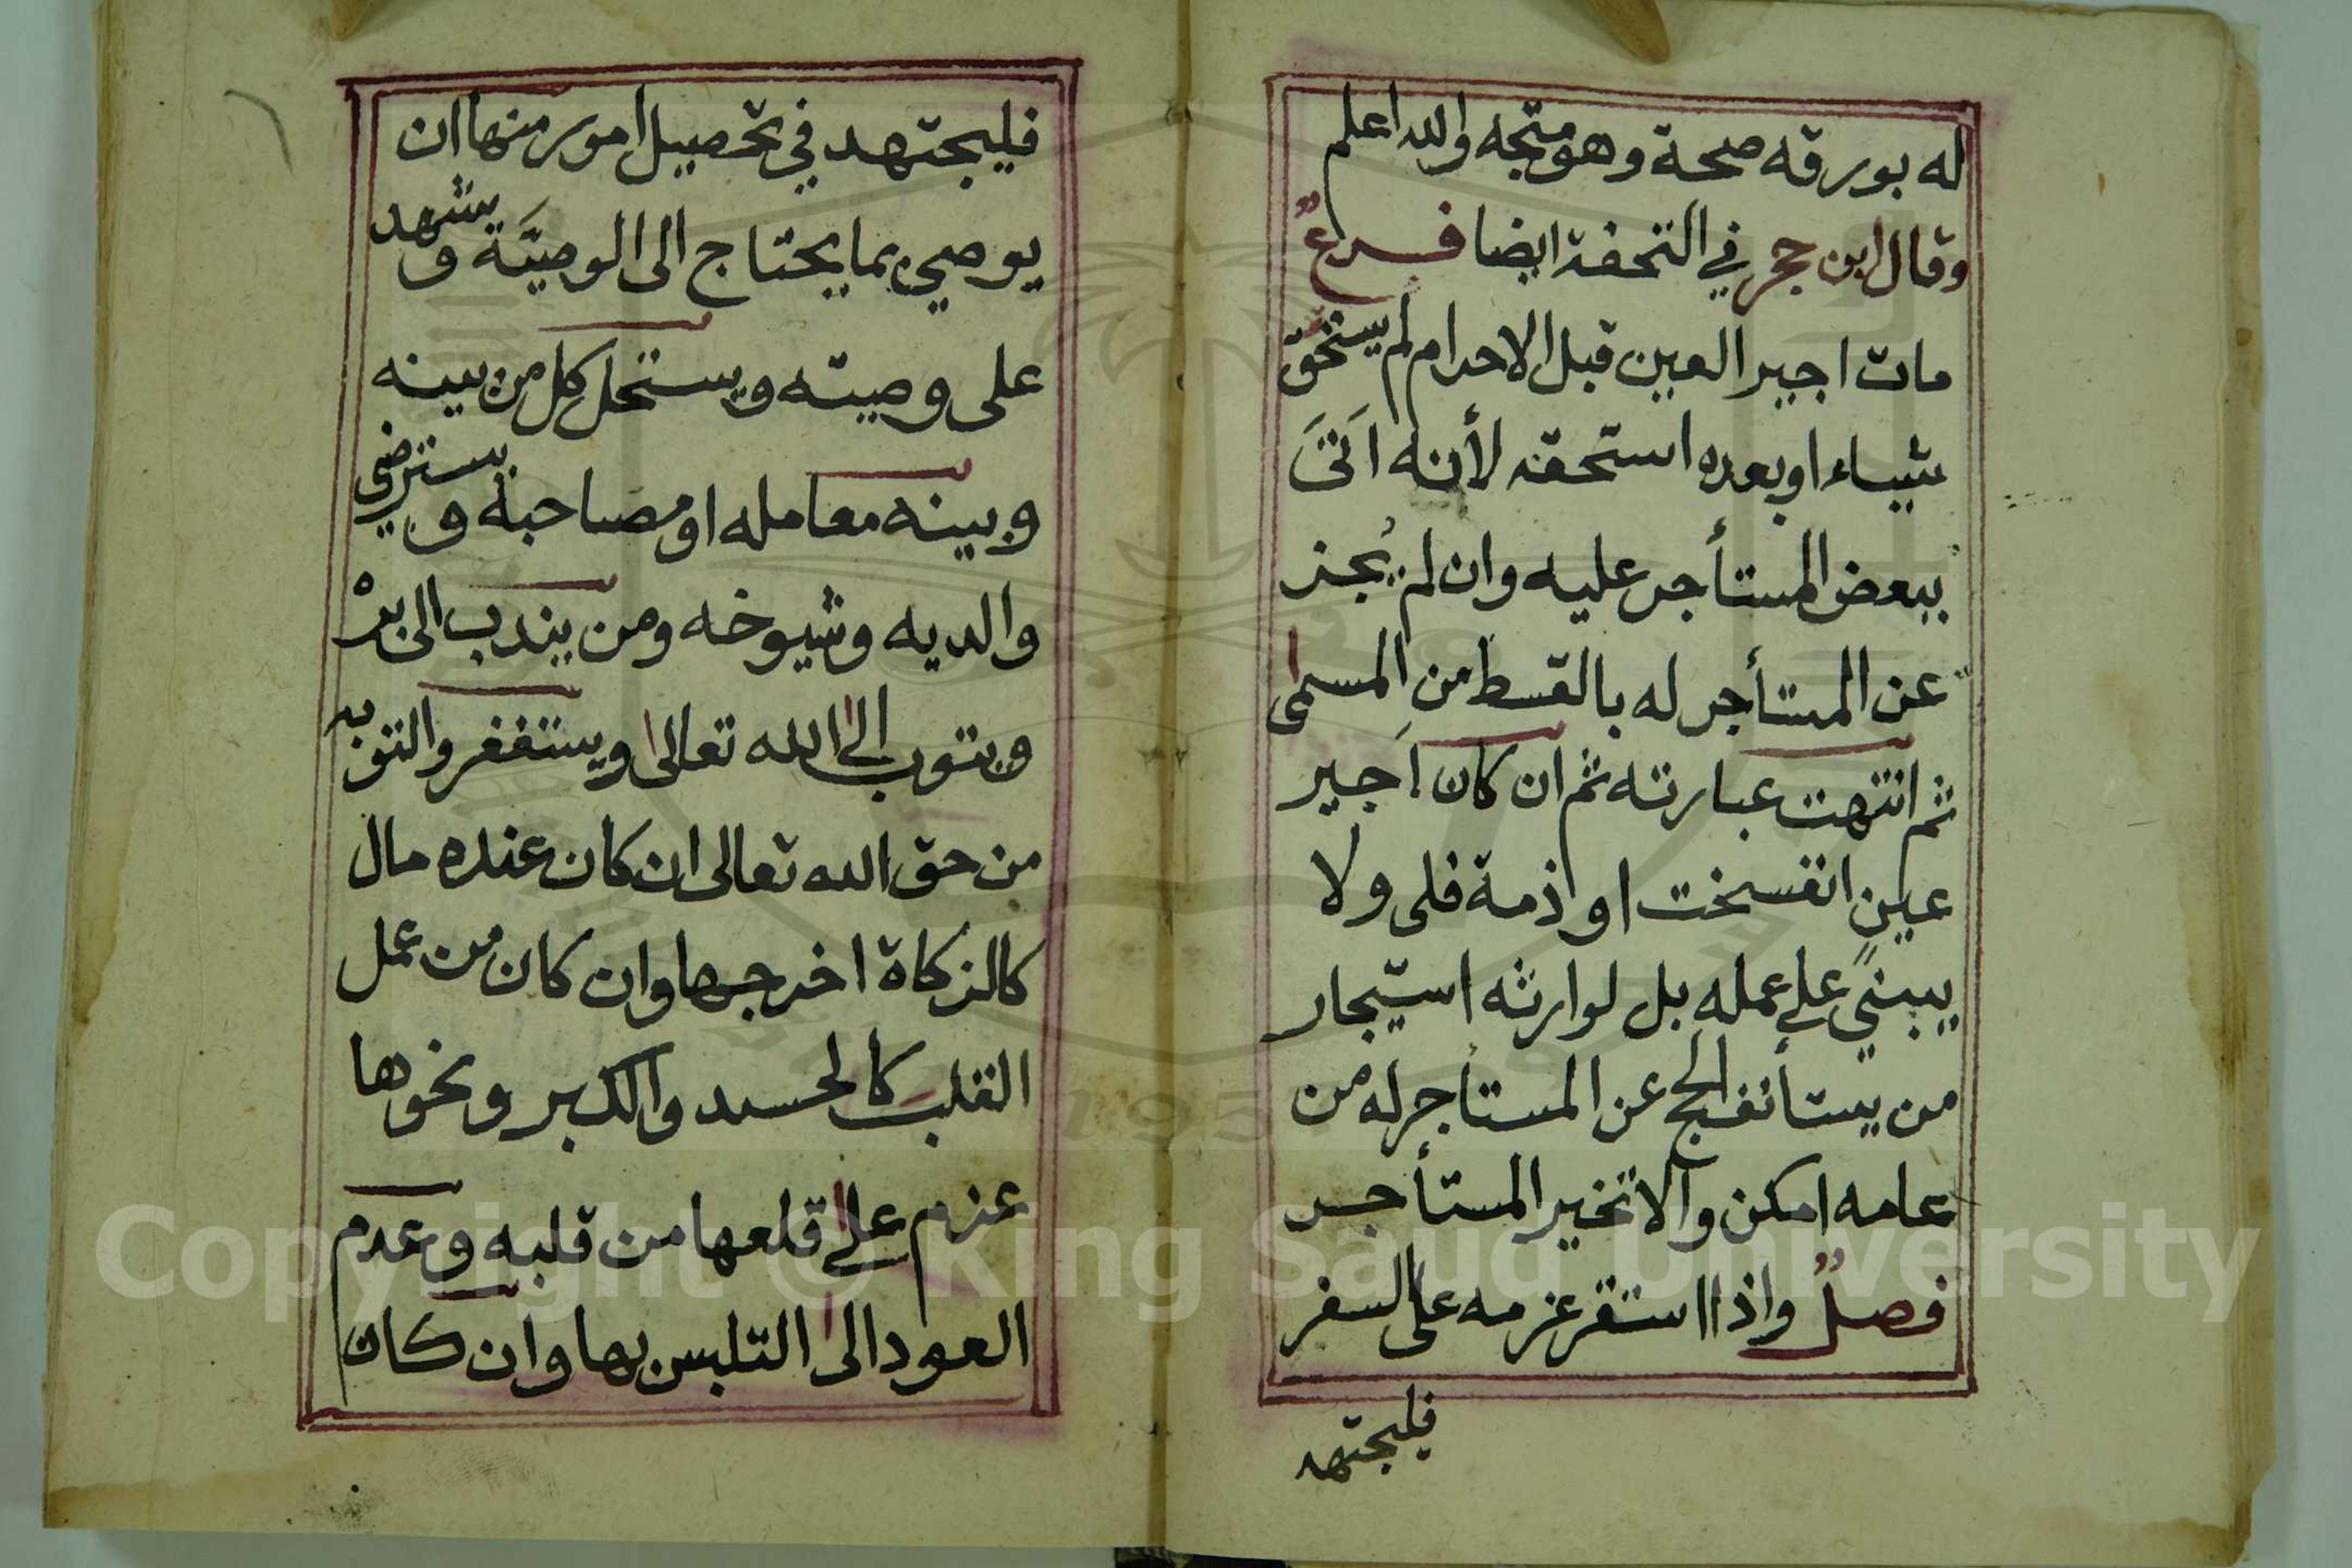 له بورقه صحة وهو متجه والله اعلم
وقال ابن حجر في التحفة ايضا فرع
مات اجير العين قبل الاحرام لم يستحق
شيياء او بعده استحقه لأنه اَتىَ
ببعض المستأجر عليه وان لم يُجز
عن المستأجر له بالقسط من المسمى
ثم انتهت عبارته ثم ان كان اَجير
عينٍ انفسخت او ذمة فلى ولا
يبني على عمله بل لوارثه استيجار
من يستأنف الحج عن المستاجر له من
عامه امكن والا تخير المستأجر
فصلٌ واذا استقر عزمه على السفر
فليجتهد
فليجتهد في تحصيل امور منها ان
يوصي بما يحتاج الى الوصيَّة ويشهد
على وصيته ويستحل كل من بينه
وبينه معامله او مصاحبة ويسترضي
والديه وشيوخه ومن يندب الى برْ
ويتوب الى الله تعالى ويستغفر والتوبه
من حق الله تعالى ان كان عنده مال
كالزكاة اخرجها وان كان من عمل
القلب كالحسد والكبر ونحوها
عزم على قلعها من قلبه وعدم
العود الى التلبس بها وان كان
Copyright © King Saud University
195